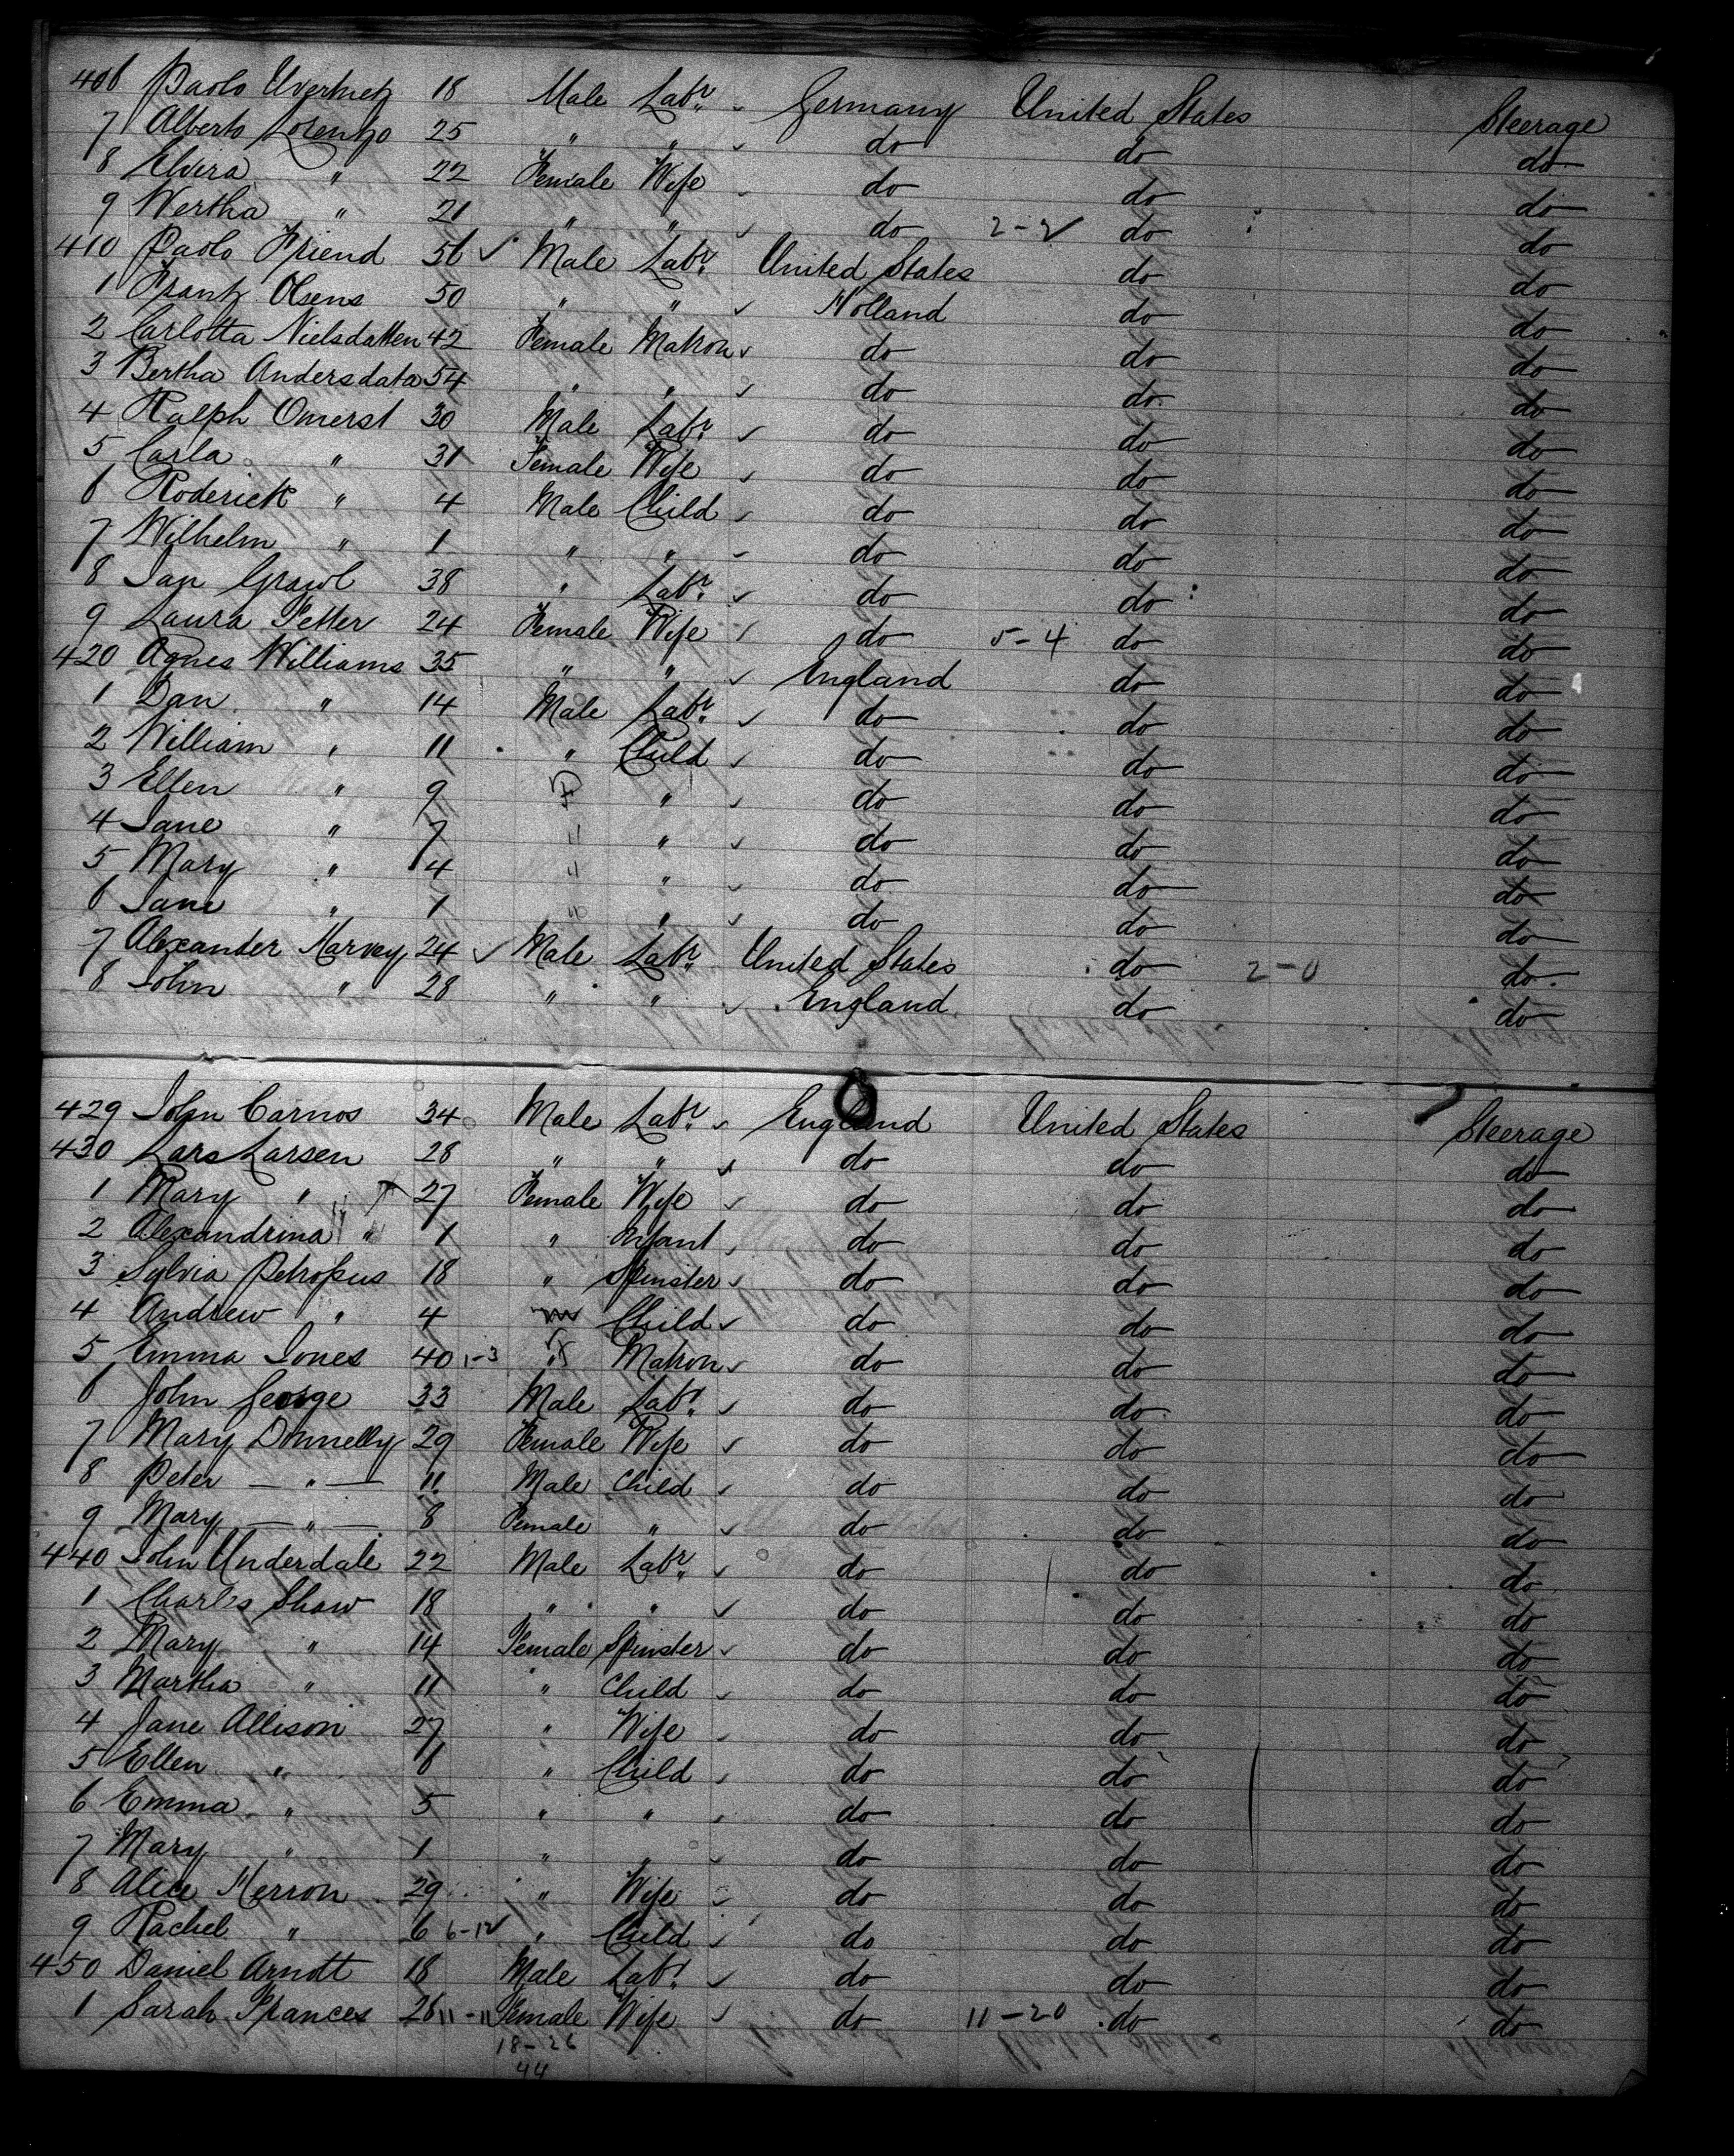 406 Paolo 18 Male Labr. Germany United States Steerage
7 Alberto Lorenzo 25 " " do do do
8 Elvira " 22 Female Wife do do do
9 Wertha " 21 " " do 2-2 do do
410 Paolo Friend 56 Male Labr. United States do do
1 Frantz Olsens 50 " " Holland do do
2 Carlotta Nielsdatten 42 Female Matron do do do
3 Bertha Andersdata 54 " " do do do
4 Ralph Omerst 30 Male Labr. do do do
5 Carla " 31 Female Wife do do do
6 Roderick " 4 Male Child do do do
7 Wilhelm " 1 " " do do do
8 Jan Grawl 38 " Labr. do do do
9 Laura Petter 24 Female Wife do 5-4 do do
420 Agnes Williams 35 " " England do do
1 Dan " 14 Male Labr. do do do
2 William " 11 " Child do do do
3 Ellen " 9 " do do do
4 Jane " 7 " " do do do
5 Mary " 4 " " do do do
6 Jane " 1 " " do do do
7 Alexander Harvey 24 Male Labr. United States do 2-0 do
8 John " 28 " " England do do
429 John Carnos 34 Male Labr. England United States Steerage
430 Lars Larsen 28 " " do do do
1 Mary " 27 Female Wife do do do
2 Alexandrina " 1 " Infant do do do
3 Sylvia Petropus 18 " Spinster do do do
4 Andrew " 4 m Child do do do
5 Emma Jones 40 1-3 Matron do do do
6 John George 33 Male Labr. do do do
7 Mary Donnelly 29 Female Wife do do do
8 Peter — " — 11 Male Child do do do
9 Mary — " — 8 Female " do do do
440 John Underdale 22 Male Labr. do do do
1 Charles Shaw 18 " " do do do
2 Mary " 14 Female Spinster do do do
3 Martha " 11 " Child do do do
4 Jane Allison 27 " Wife do do do
5 Ellen " 6 " Child do do do
6 Emma " 5 " " do do do
7 Mary " 1 " " do do do
8 Alice Herron 29 " Wife do do do
9 Rachel " 6 6-12 " Child do do do
450 Daniel Arndt 18 Male Labr. do do do
1 Sarah Frances 26 11-11 Female Wife do 11-20 do do
18-26
44